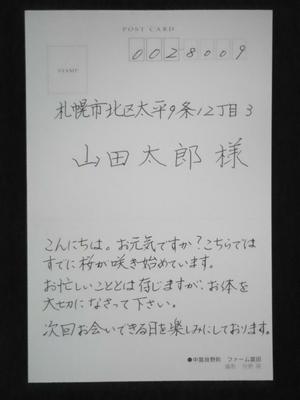 POST CARD
STAMP
0028009
札幌市北区太平9条12丁目3
山田太郎様
こんにちは。お元気ですか?こちらでは
すでに桜が咲き始めています。
お忙しいこととは存じますが、お体を
大切になさって下さい。
次回お会いできる日を楽しみにしております。
●中富良野町 ファーム富田